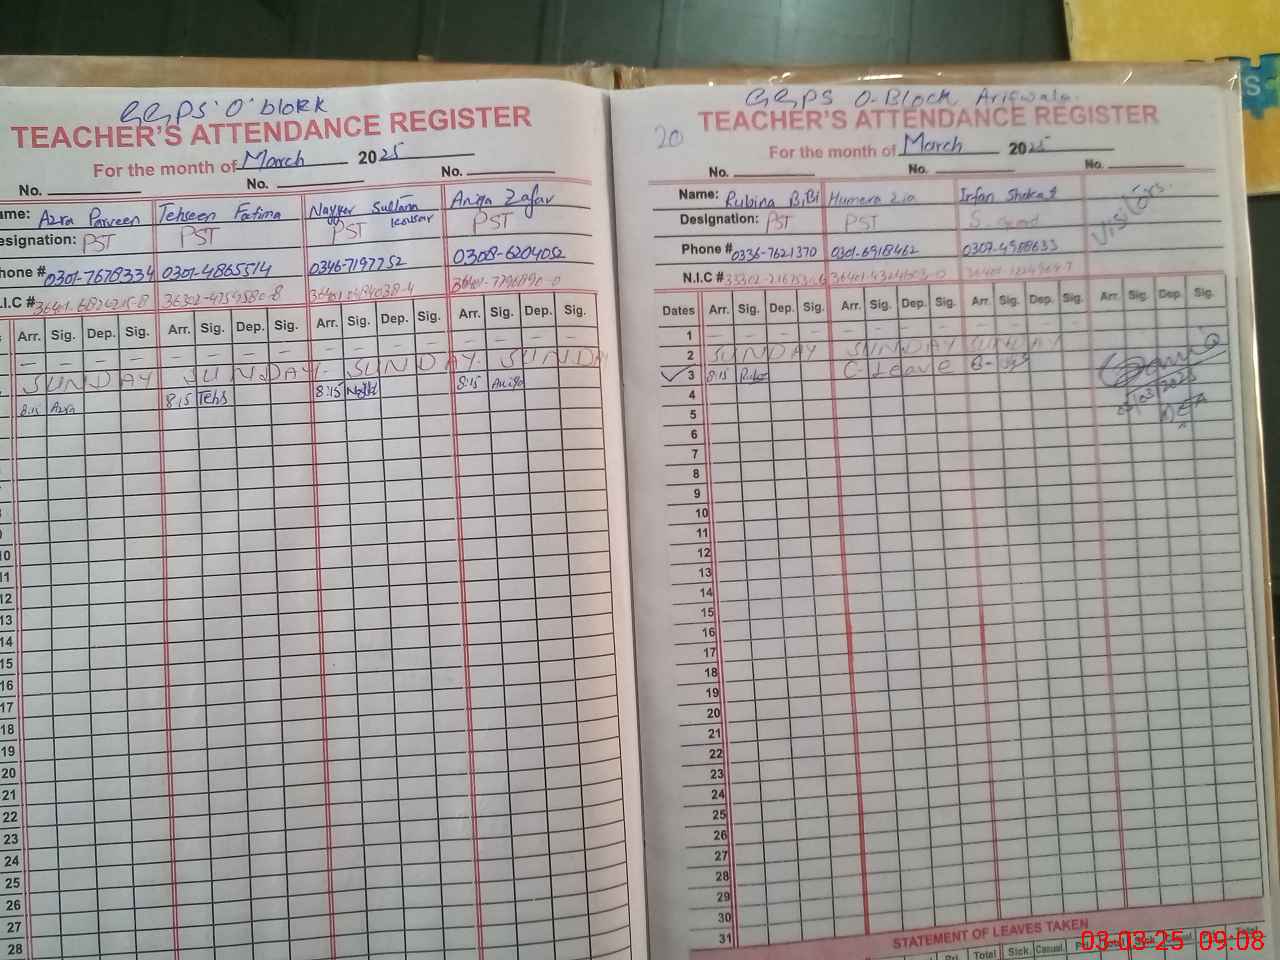 GGPS 'O' block
TEACHER'S ATTENDANCE REGISTER
For the month of March 2025
No. No. No.
ame: Azra Parveen Tehseen Fatima Nayyer Sultana Kausar Aniqa Zafar
esignation: PST PST PST PST
hone # 0301-7678334 0301-4865514 0346-7197752 0308-6204052
.I.C #
Arr. Sig. Dep. Sig. Arr. Sig. Dep. Sig. Arr. Sig. Dep. Sig. Arr. Sig. Dep. Sig.
– – – – – – – – – – – – – – – –
SUNDAY SUNDAY SUNDAY SUNDA
8:15 Azra 8:15 Tehs 8:15 8:15 Aniqa
10
11
12
13
14
15
16
17
18
19
20
21
22
23
24
25
26
27
28
GGPS O-Block Arifwala.
20
TEACHER'S ATTENDANCE REGISTER
For the month of March 2025
No. No. No.
Name: Rubina BiBi Humera Zia Irfan Shokat Visitors.
Designation: PST PST
Phone # 0336-7621370 0301-6918462 0307-4988633
N.I.C #
Dates Arr. Sig. Dep. Sig. Arr. Sig. Dep. Sig. Arr. Sig. Dep. Sig. Arr. Sig. Dep. Sig.
1 – – – – – – – – – – – –
2 SUNDAY SUNDAY SUNDAY
3 8:15 C-Leave
4
5
6
7
8
9
10
11
12
13
14
15
16
17
18
19
20
21
22
23
24
25
26
27
28
29
30
31
STATEMENT OF LEAVES TAKEN
Total Sick Casual Total
03-03-25 09:08